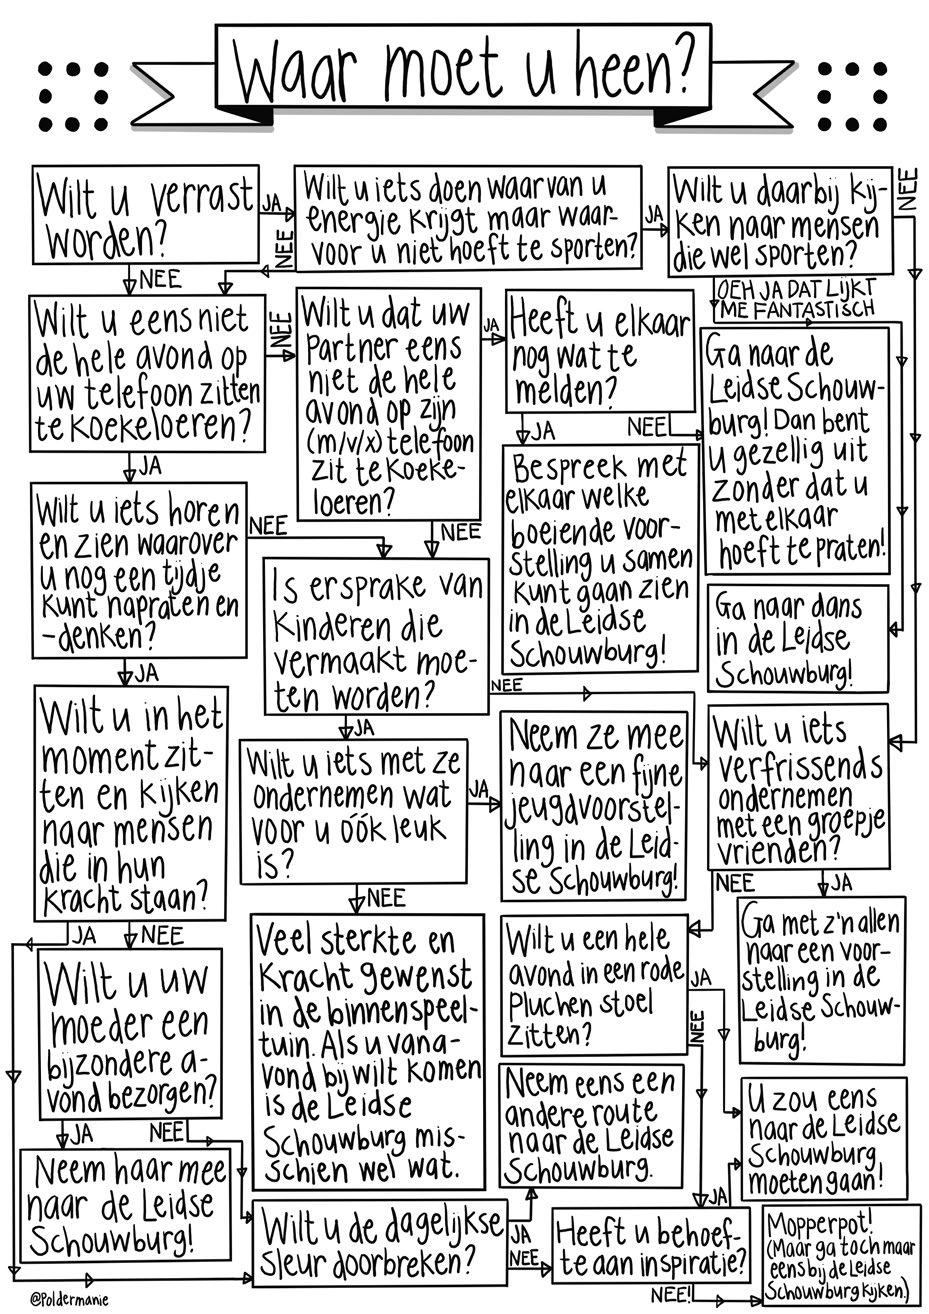 Waar moet u heen?
Wilt u verrast
worden?
JA
NEE
Wilt u iets doen waarvan u
energie krijgt maar waar-
voor u niet hoeft te sporten?
JA
NEE
Wilt u daarbij kij-
ken naar mensen
die wel sporten?
NEE
OEH JA DAT LIJKT
ME FANTASTISCH
Wilt u eens niet
de hele avond op
uw telefoon zitten
te koekeloeren?
NEE
JA
Wilt u dat uw
partner eens
niet de hele
avond op zijn
(m/v/x) telefoon
zit te koeke-
loeren?
JA
NEE
Heeft u elkaar
nog wat te
melden?
JA
NEE
Ga naar de
Leidse Schouw-
burg! Dan bent
u gezellig uit
zonder dat u
met elkaar
hoeft te praten!
Bespreek met
elkaar welke
boeiende voor-
stelling u samen
kunt gaan zien
in de Leidse
Schouwburg!
Wilt u iets horen
en zien waarover
u nog een tijdje
kunt napraten en
-denken?
NEE
JA
Is er sprake van
kinderen die
vermaakt moe-
ten worden?
NEE
JA
Ga naar dans
in de Leidse
Schouwburg!
Wilt u in het
moment zit-
ten en kijken
naar mensen
die in hun
kracht staan?
JA
NEE
Wilt u iets met ze
ondernemen wat
voor u óók leuk
is?
JA
NEE
Neem ze mee
naar een fijne
jeugdvoorstel-
ling in de Leid-
se Schouwburg!
Wilt u iets
verfrissends
ondernemen
met een groepje
vrienden?
NEE
JA
Wilt u uw
moeder een
bijzondere a-
vond bezorgen?
JA
NEE
Veel sterkte en
kracht gewenst
in de binnenspeel-
tuin. Als u van a-
vond bij wilt komen
is de Leidse
Schouwburg mis-
schien wel wat.
Wilt u een hele
avond in een rode
pluchen stoel
zitten?
JA
NEE
Ga met z'n allen
naar een voor-
stelling in de
Leidse Schouw-
burg!
Neem eens een
andere route
naar de Leidse
Schouwburg.
U zou eens
naar de Leidse
Schouwburg
moeten gaan!
Neem haar mee
naar de Leidse
Schouwburg!
Wilt u de dagelijkse
sleur doorbreken?
JA
NEE
Heeft u behoef-
te aan inspiratie?
JA
NEE!
Mopperpot!
(Maar ga toch maar
eens bij de Leidse
Schouwburg kijken.)
@Poldermanie